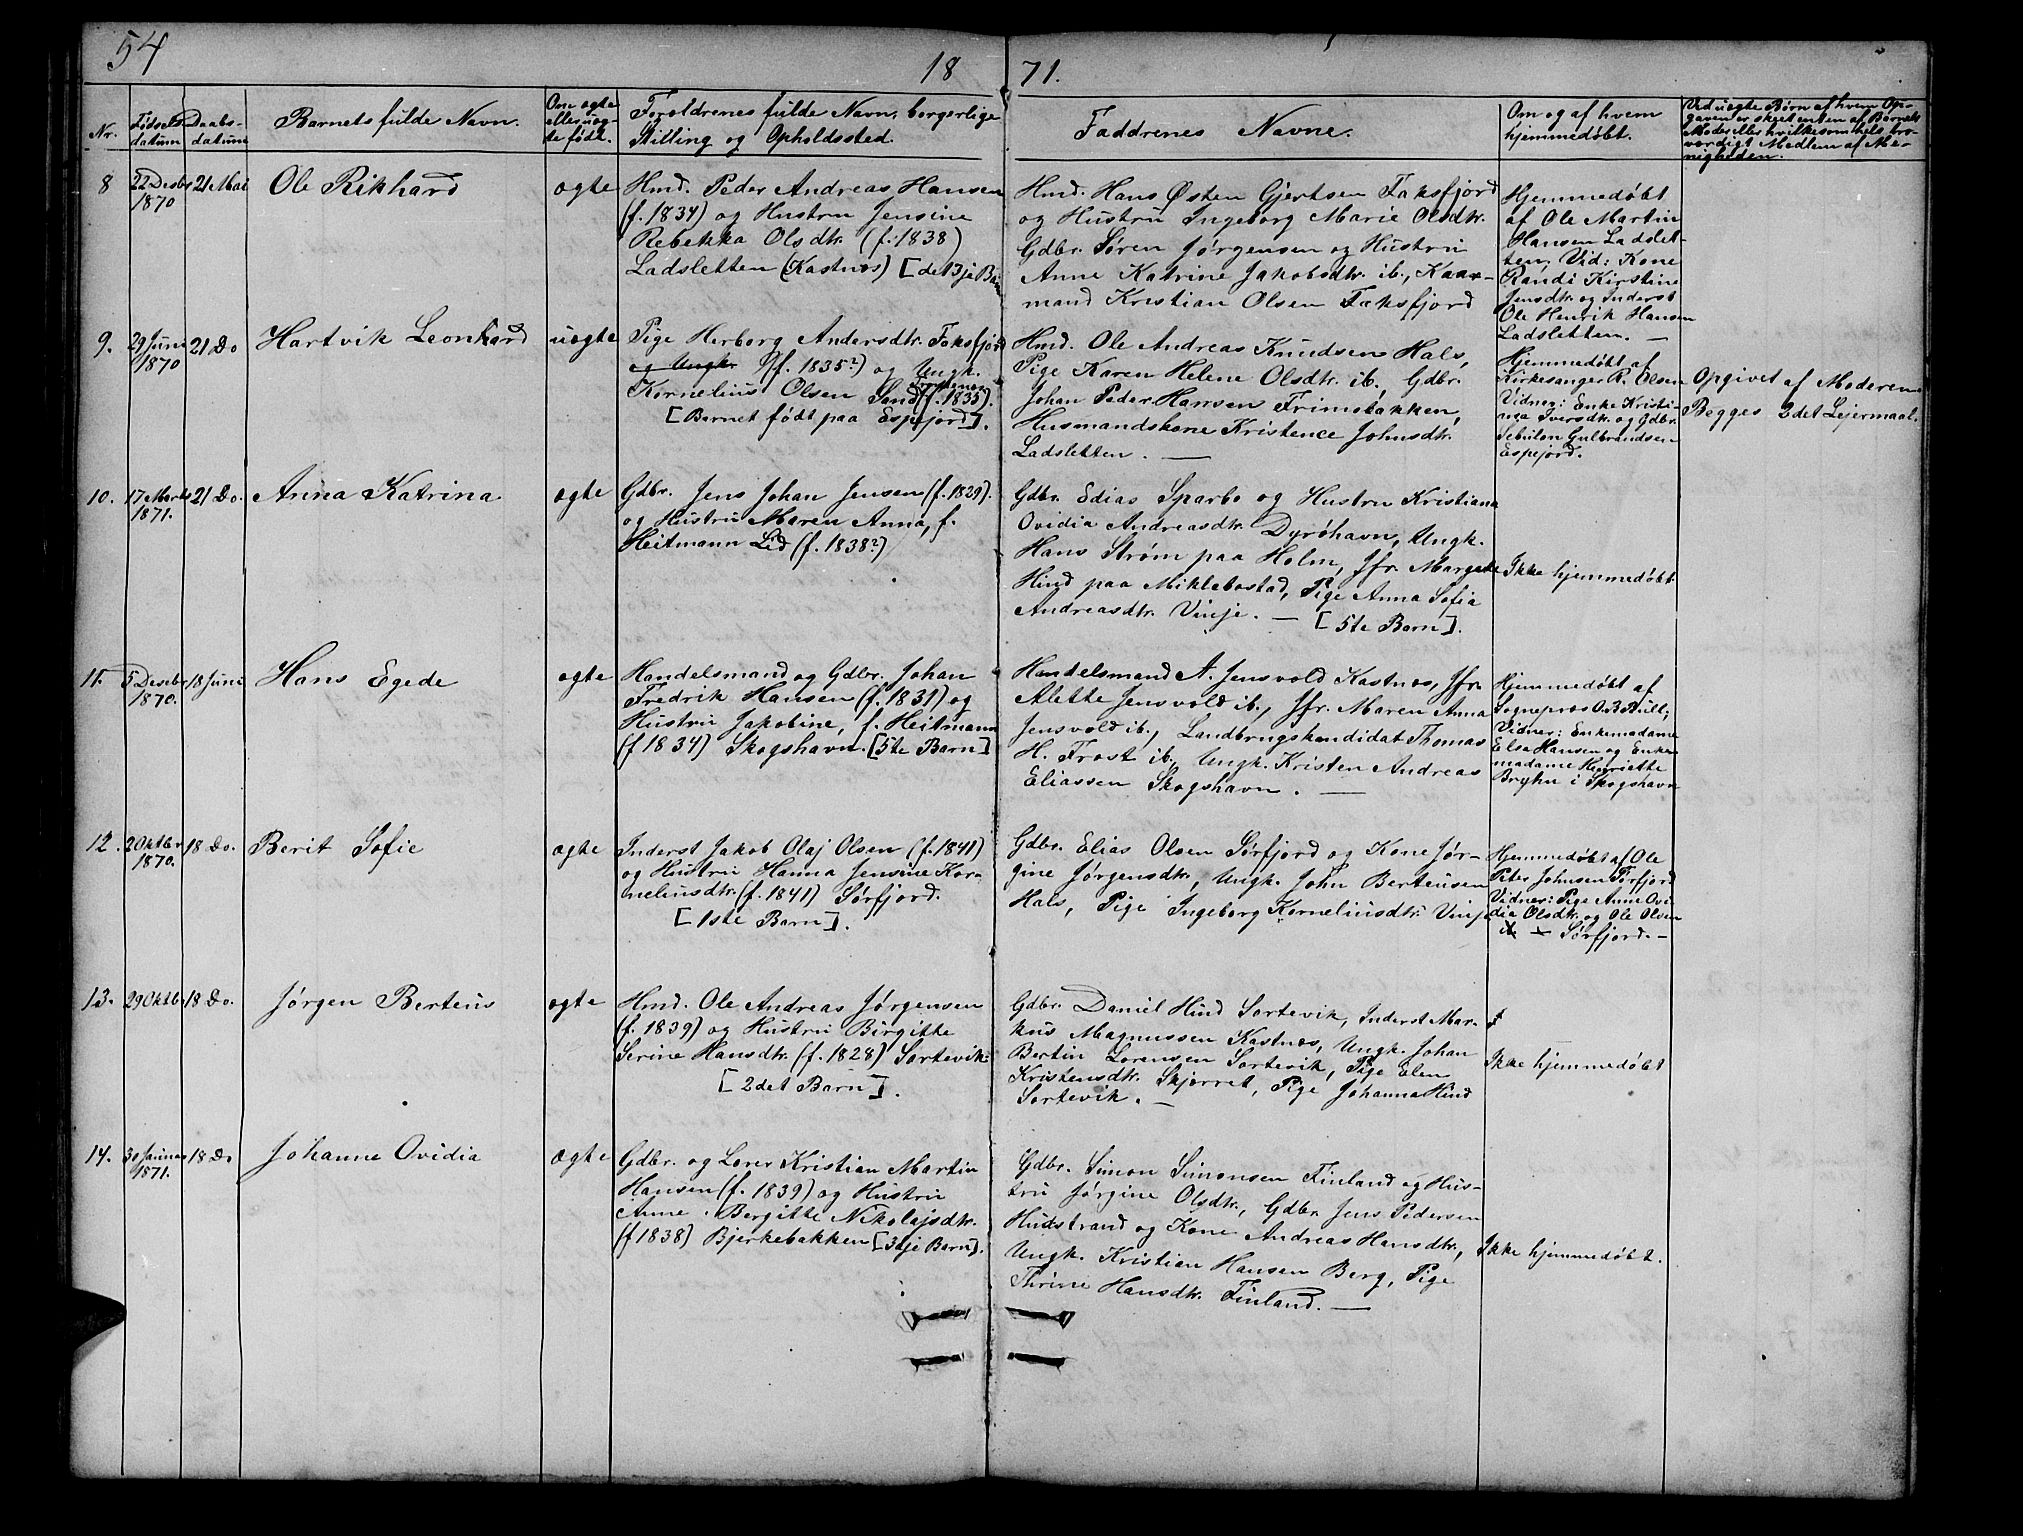 54
1871.
Nr.
Fødsels-
datum
Daabs-
datum
Barnets fulde Navn.
Om ægte
eller uæg-
te født.
Forældrenes fulde Navn, borgerlige
Stilling og Opholdssted.
Faddrenes Navne.
Om og af hvem
hjemmedøbt.
Ved uægte Børn af hvem Op-
gaven er skeet enten af Barnets
Moder eller hvilketsomhelst tro-
værdigt Medlem af Me-
nigheden.
8
22 Desbr
1870
21 Mai
Ole Rikhard
ægte
Hmd. Peder Andreas Hansen
(f. 1834) og Hustru Jensine
Rebekka Olsdtr. (f. 1838)
Ladsletten (Kastnæs) [det 3je Barn
Hmd. Hans Østen Gjertsen Faksfjord
og Hustru Ingeborg Marie Olsdtr.
Gdbr. Søren Jørgensen og Hustru
Anne Katrine Jakobsdtr. ib., Kaar-
mand Kristian Olsen Faksfjord
Hjemmedøbt
af Ole Martin
Hansen Ladslet-
ten. Vid: Kone
Randi Kirstine
Jensdtr. og Inderst
Ole Henrik Hansen
Ladsletten. —
9.
29 Juni
1870
21 Do
Hartvik Leonhard
uægte
Pige Herborg Andersdtr. Faksfjord
og Ungk. (f. 1835?) og Ungk.
Kornelius Olsen Sand (f. 1835).
[Barnet født paa Espejord].
Hmd. Ole Andreas Knudsen Hals,
Pige Karen Helene Olsdtr. ib., Gdbr.
Johan Peder Hansen Frimstakken,
Husmandskone Kristence Johnsdtr.
Ladsletten. —
Hjemmedøbt af
Kirkesanger R. Olsen
Vidner: Enke Kristi-
na Iversdtr. og Gdbr.
Sebulon Gulbrandsen
Espejord.
Opgivet af Moderen
Begges 2det Lejermaal.
10.
17 Marts
1871.
21 Do.
Anna Katrina
ægte
Gdbr. Jens Johan Jensen (f. 1829).
og Hustru Maren Anna, f.
Heitmann Lid (f. 1838?)
Gdbr. Edias Sparbo og Hustru Kristiana
Ovidia Andreasdtr. Dyrøhavn, Ungk.
Hans Strøm paa Holm, Jfr. Margrete
Hind paa Miklebostad, Pige Anna Sofia
Andreasdtr. Vinje. — [5te Barn].
Ikke hjemmedøbt.
11.
5 Desebr
1870.
18 Juni
Hans Egede
ægte
Handelsmand og Gdbr. Johan
Fredrik Hansen (f. 1831) og
Hustru Jakobine, f. Heitmann
(f 1834) Skogshavn. [5te Barn]
Handelsmand A. Jensvold Kastnæs, Jfr.
Alette Jensvold ib., Jfr. Maren Anna
Jensvold ib., Landbrugskandidat Thomas
H. Frost ib., Ungk. Kristen Andreas
Eliassen Skogshavn. —
Hjemmedøbt af
Sognepræs O. B. Bull;
Vidner: Enkemadame
Elsa Hansen og Enke-
madame Henriette
Bryhn i Skogshavn
12.
2 Oktbr
1870.
18 Do.
Berit Sofie
ægte
Inderst Jakob Olaj Olsen (f. 1841)
og Hustru Hanna Jensine Kor-
neliusdtr. (f. 1841) Sørfjord.
[1ste Barn].
Gdbr. Elias Olsen Sørfjord og Kone Jør-
gine Jørgensdtr., Ungk. John Berteusen
Hals, Pige Ingeborg Korneliusdtr. Vinje
Hjemmedøbt af Ole
Peter Johnsen Sørfjord
Vidner: Pige Anne Ovi-
dia Olsdtr. og Ole Olsen
ib. — Sørfjord. —
13.
29 Oktbr
18 Do.
Jørgen Berteus
ægte
Hmd. Ole Andreas Jørgensen
(f. 1839) og Hustru Birgitte
Serine Hansdtr. (f. 1828) Sørtevik.
[2det Barn].
Gdbr. Daniel Hind Sortevik, Inderst Mar-
kus Magnussen Kastnæs, Ungk. Johan
Bertin Lorensen Sortevik, Pige Elen
Kristensdtr. Skjørret, Pige Johanna Hind
Sortevik. —
Ikke hjemmedøbt
14.
30 Januar
1871.
18 Do
Johanne Ovidia
ægte
Gdbr. og Lærer Kristian Martin
Hansen (f. 1839) og Hustru
Anne Bergitte Nikolajsdtr.
(f 1838) Bjerkebakken [3dje Barn].
Gdbr. Simon Simonsen Finland og Hus-
tru Jørgine Olsdtr., Gdbr. Jens Pedersen
Hukstrand og Kone Andreas Hansdtr.,
Ungk. Kristian Hansen Berg, Pige
Thrine Hansdtr. Finland. —
Ikke hjemmedøbt.